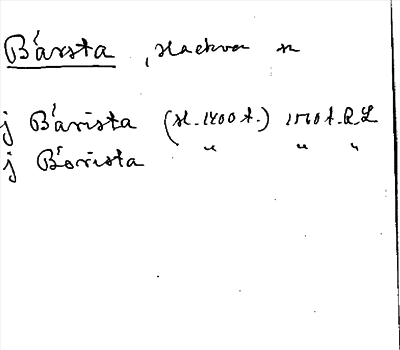 Bársta, Hackva sn
j Bárista (sl. 1400 t.) 1540 t. R L
j Bórista " " "